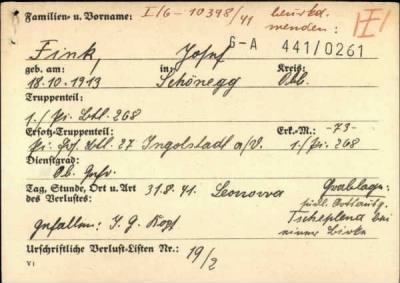 Familien- u. Vorname: I/6 - 10398/41 beurkd. werden: I
Fink, Josef G-A 441/0261
geb. am: in: Kreis:
18.10.1913 Schönegg
Truppenteil:
1./Pi. Btl. 268
Ersatz-Truppenteil: Erk.-M.: -73-
Pi. Ers. Btl. 27 Ingolstadt a/D. 1./Pi. 268
Dienstgrad:
Ob. Gefr.
Tag, Stunde, Ort u. Art des Verlustes: 31.8.41. Leonowa Grablage:
südl. Ortsausg.
Tscheplena bei
einer Birke
gefallen: I. G. Kopf
Urschriftliche Verlust-Listen Nr.: 19/2
V1